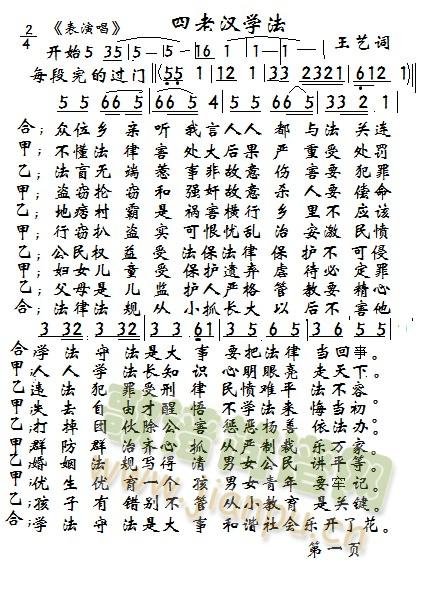 四老汉学法
2/4 《表演唱》
王艺词
开始5 35 | 5— | 5— | 16 1 | 1— | 1— |
每段完的过门 ‖(55 1 | 12 1 | 33 2321 | 612 1) ‖
5 5 | 66 5 | 66 5 | 4 5 | 5 5 | 66 5 | 33 2 |
合；众位乡亲听我言人人都与法关连
甲；不懂法律害处大后果严重受处罚
乙；法盲无端惹事非故意伤害要犯罪
甲；盗窃抢窃和强奸故意杀人要偿命
乙；地痞村霸是祸害横行乡里不应该
甲；行窃扒盗实可恨扰乱治安激民愤
乙；公民权益受法保法律保护不可侵
甲；妇女儿童受法保护遗弃虐待必定罪
乙；父母是儿监护人严格管教要精心
合；法律法规从小抓长大以后不害他
3 32 | 3 32 | 3 3 | 61 | 3 6 | 6 5 | 3 6 | 5— |
合；学法守法是大事要把法律当回事。
甲；人人学法长知识心明眼亮走天下。
乙；违法犯罪受刑律民愤难平法不饶。
甲；失去自由才醒悟不学法来悔当初
乙；打掉团伙除公害惩恶扬善依法办。
甲；群防群治齐心抓从严制裁乐万家。
乙；婚姻法规写得清男女公民讲平等
甲；优生优育一个孩男女青年要牢记
乙；孩子有错别不管从小教育是关键。
合；学法守法是大事和谐社会乐开了花。
第一页